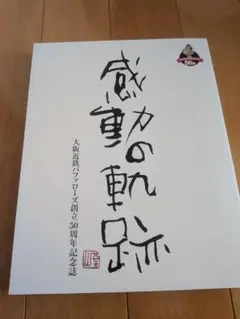 感動の軌跡
大阪近鉄バファローズ創立50周年記念誌